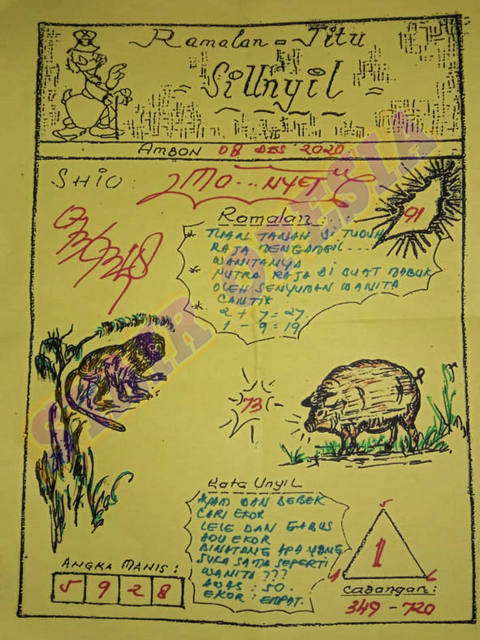 Ramalan = Jitu
= Si Unyil =
AMBON 08 DES 2020
SHIO:
MO...NYET
91
Ramalan:...
* TUAN TANAH DI TUDUH
RAJA MENGAMBIL...
WANITANYA
* PUTRA RAJA DI BUAT MABUK
OLEH SENYUMAN WANITA
* CANTIK
2 + 7 = 27.
1 - 9 = 19
73
Kata UNYIL
AYAM DAN BEBEK
CARI EKOR
LELE DAN GABUS
ADU EKOR
BINATANG APA YANG
SUKA SAMA SEPERTI
WANITA ???
AWAS : 50.
EKOR : EMPAT.
ANGKA MANIS:
5 9 2 8
5
1
6
Cadangan:
349 - 720